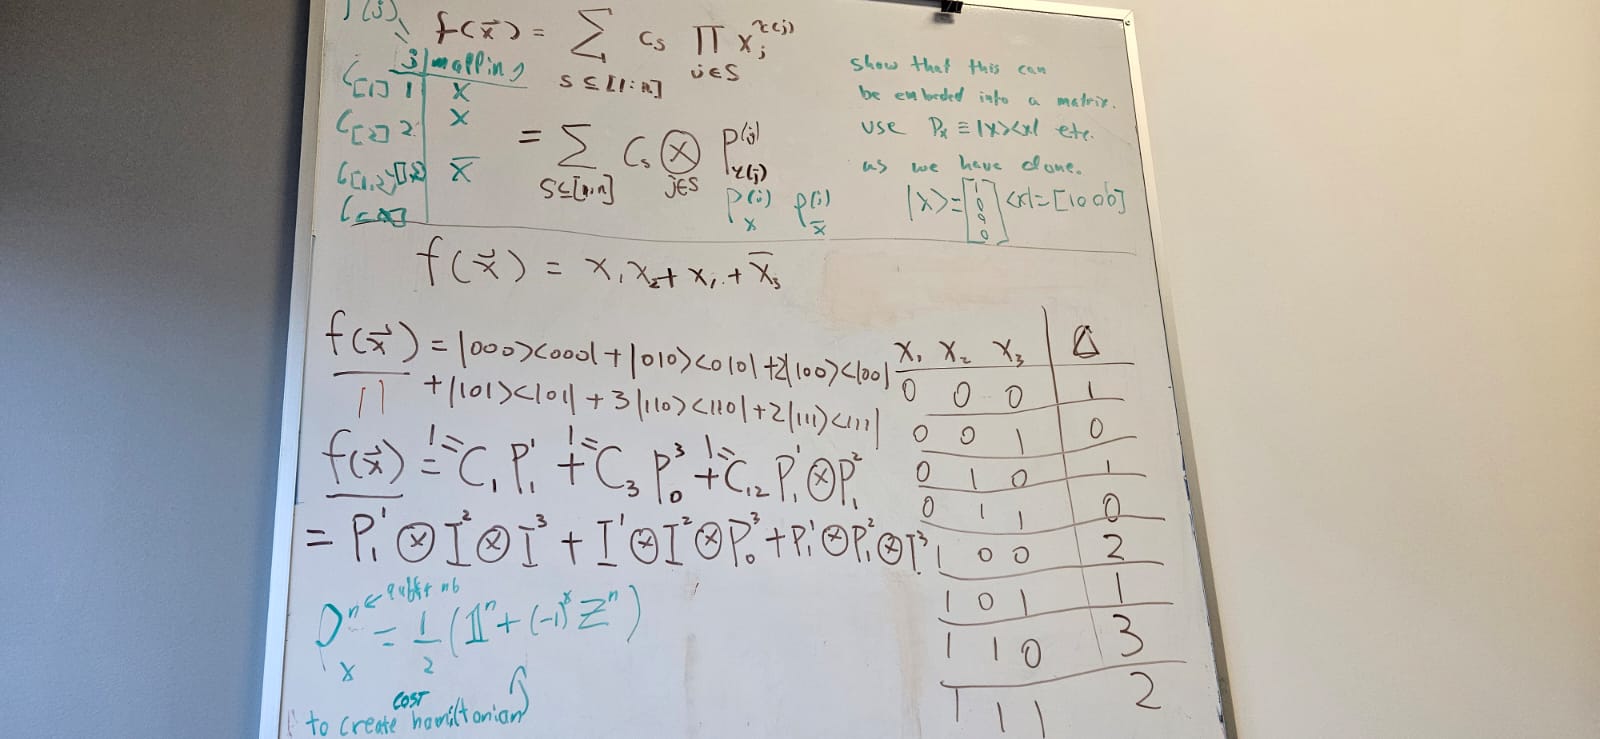 f(x⃗) = Σ_{S⊆[1:n]} C_S ∏_{j∈S} x_j^{τ(j)}
j | mapping
C_[1] 1 | x
C_[2] 2 | x
x̄
= Σ_{S⊆[1:n]} C_S ⊗_{j∈S} P^{(j)}_{τ(j)}
P^{(j)}_x P^{(j)}_x̄
show that this can
be embedded into a matrix.
use P_x ≡ |x><x| etc.
as we have done.
|x> = [1 0 0 0] <x| = [1 0 0 0]
f(x⃗) = x₁x₂ + x₁ + x̄₃
f(x⃗) = |000><000| + |010><010| + 2|100><100|
+ |101><101| + 3|110><110| + 2|111><111|
f(x⃗) = C₁ P₁¹ + C₃ P₀³ + C₁₂ P₁¹ ⊗ P₁²
1= 1= 1=
= P₁¹ ⊗ I² ⊗ I³ + I¹ ⊗ I² ⊗ P₀³ + P₁¹ ⊗ P₁² ⊗ I³
P_x^n = 1/2 (𝟙^n + (-1)^x Z^n)
n ← qubit nb
to create cost hamiltonian
x₁ x₂ x₃ | C
0 0 0 | 1
0 0 1 | 0
0 1 0 | 1
0 1 1 | 0
1 0 0 | 2
1 0 1 | 1
1 1 0 | 3
1 1 1 | 2